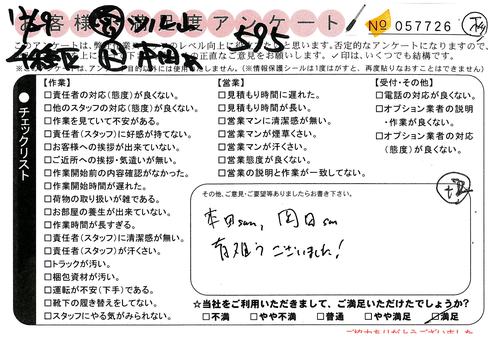 お客様満足度アンケート
No 057726
595
このアンケートは、弊
否定的なアンケートになりますので、
正直なご意見をお願いします。✓印は、いくつでも結構です。
チェックリスト
【作業】
□責任者の対応(態度)が良くない。
□他のスタッフの対応(態度)が良くない。
□作業を見ていて不安がある。
□責任者(スタッフ)に好感が持てない。
□お客様への挨拶が出来ていない。
□ご近所への挨拶・気遣いが無い。
□作業開始前の内容確認がなかった。
□作業開始時間が遅れた。
□荷物の取り扱いが雑である。
□お部屋の養生が出来ていない。
□作業時間が長すぎる。
□責任者(スタッフ)に清潔感が無い。
□責任者(スタッフ)が汗くさい。
□トラックが汚い。
□梱包資材が汚い。
□運転が不安(下手)である。
□靴下の履き替えをしてない。
□スタッフにやる気がみられない。
【営業】
□見積もり時間に遅れた。
□見積もり時間が長い。
□営業マンに清潔感が無い。
□営業マンが煙草くさい。
□営業マンが汗くさい。
□営業態度が良くない。
□営業の説明と作業が一致してない。
【受付・その他】
□電話の対応が良くない。
□オプション業者の説明
・作業が良くない。
□オプション業者の対応
(態度)が良くない。
その他、ご意見・ご要望等ありましたらお書き下さい。
本田san, 岡田san
有難うございました!
☆当社をご利用いただきまして、ご満足いただけたでしょうか?
□不満 □やや不満 □普通 □やや満足 □満足
ご協力ありがとうございました